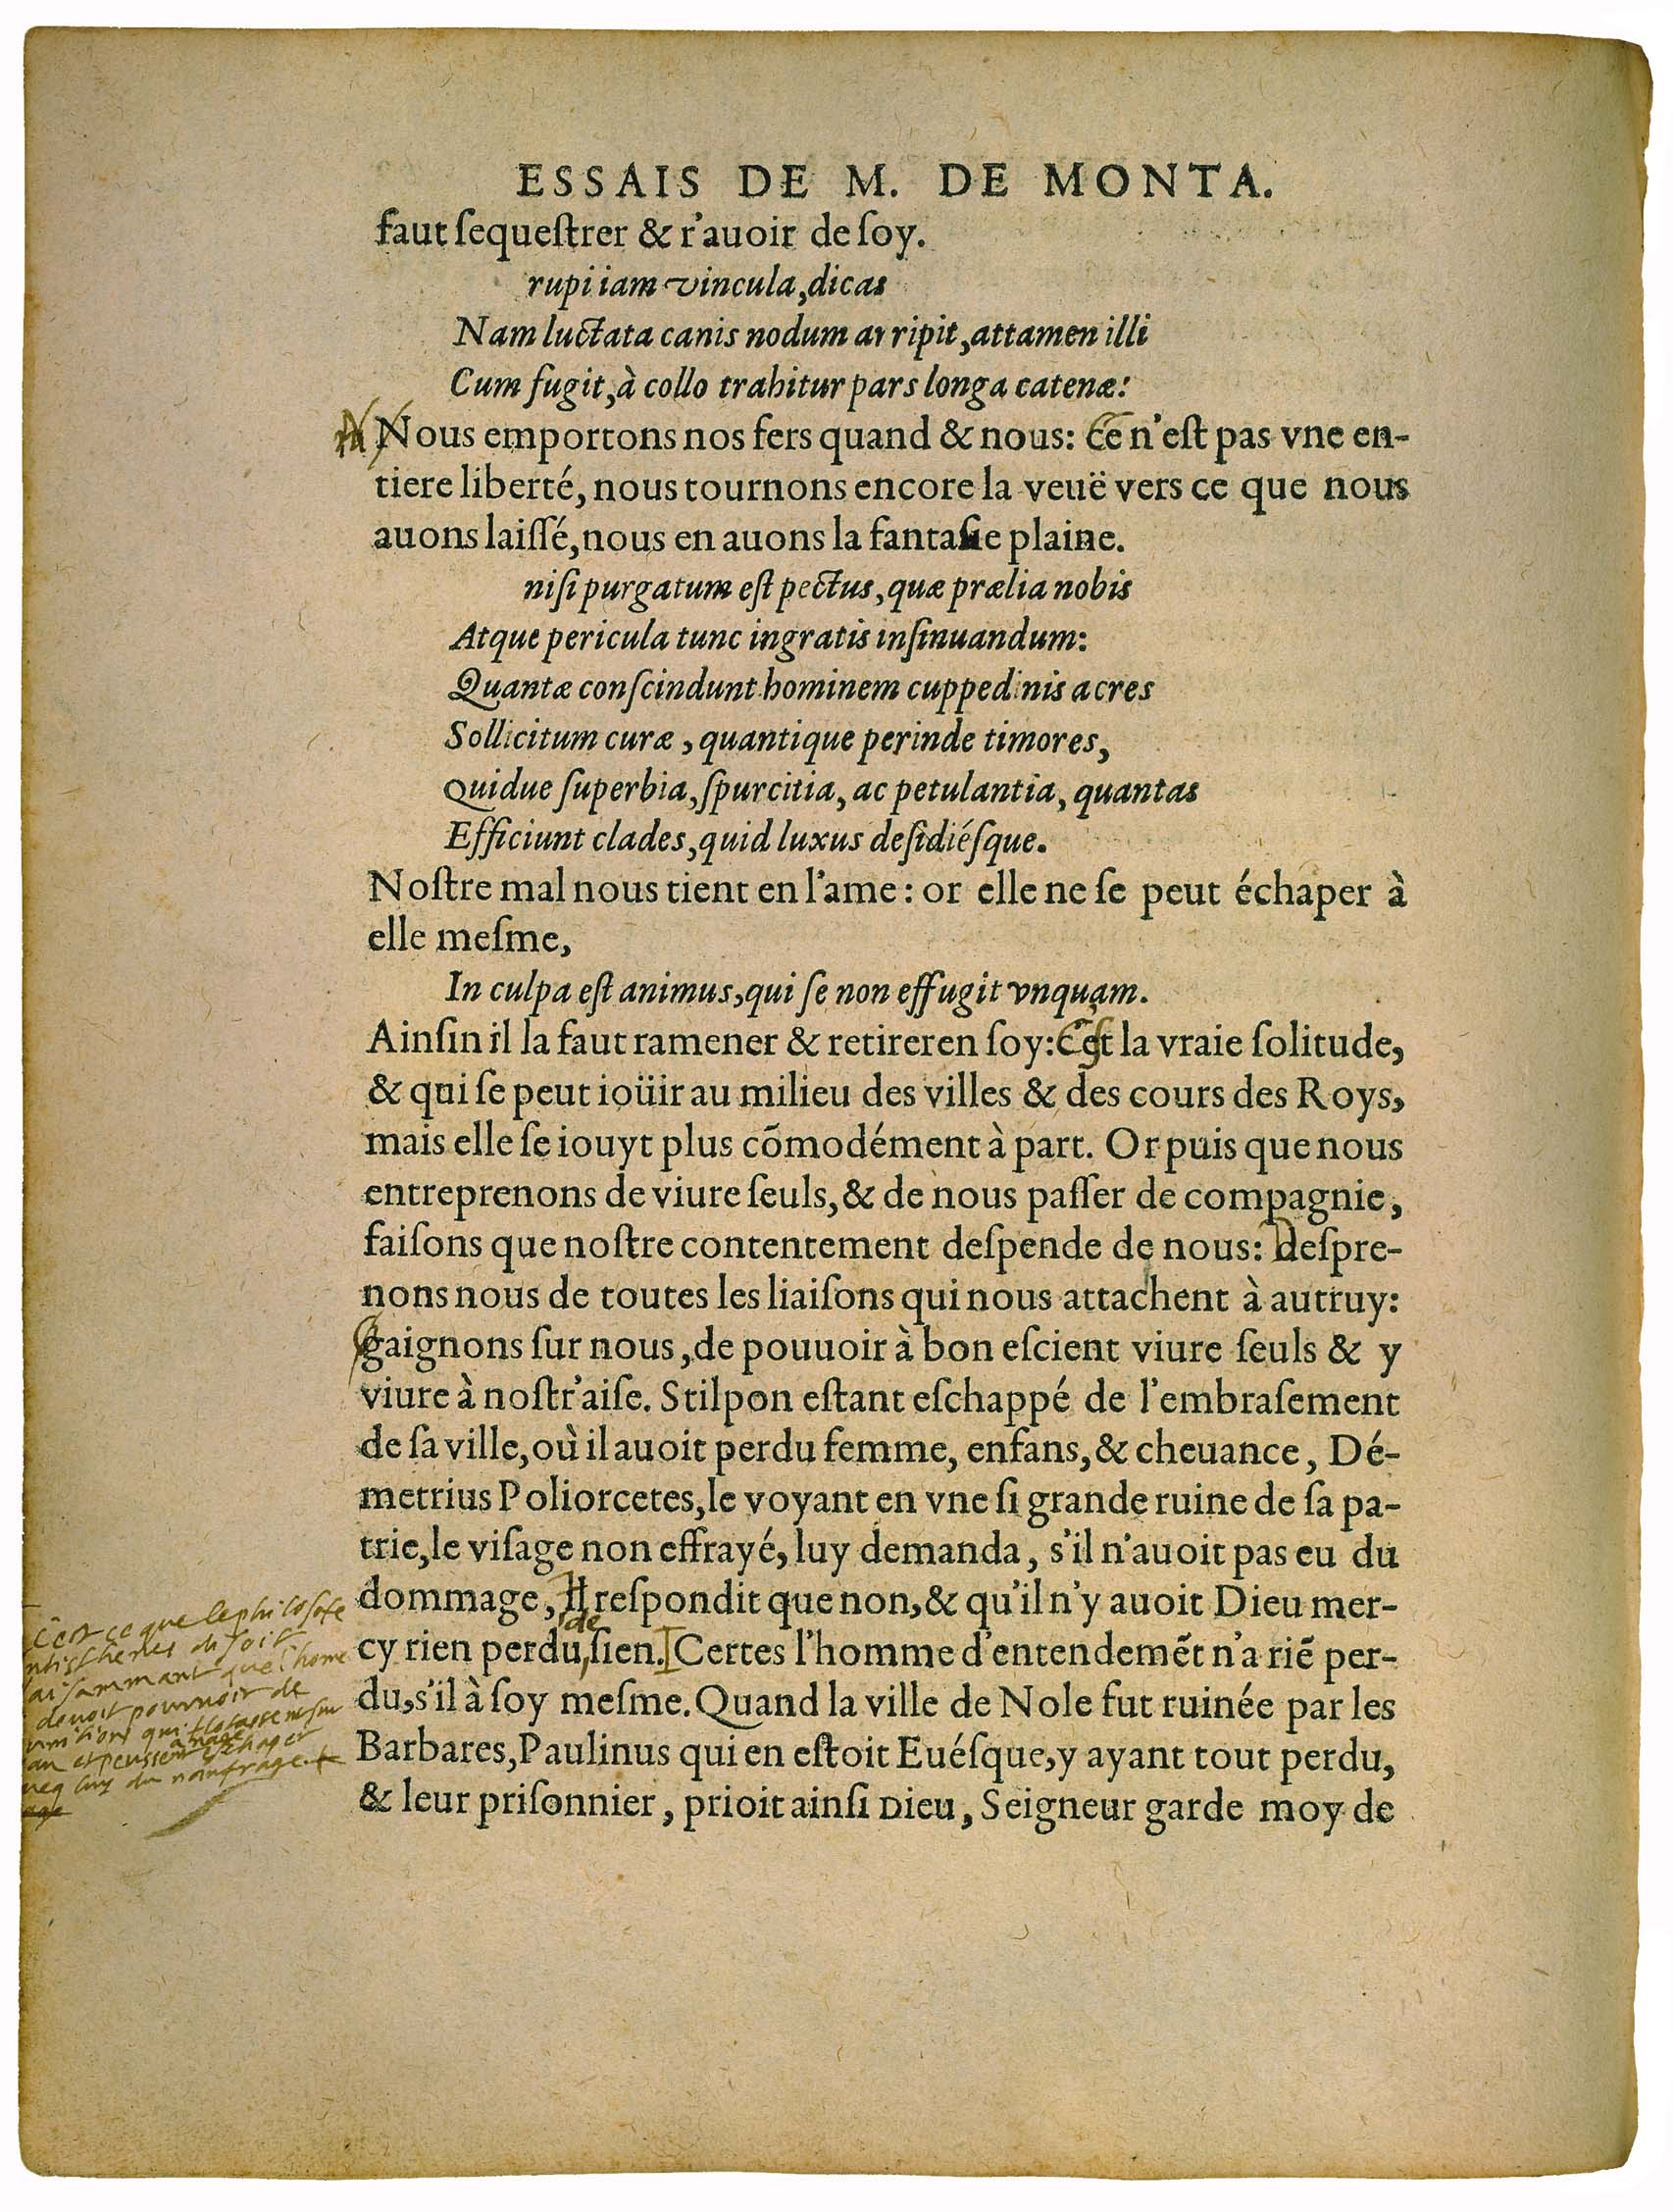 ESSAIS DE M. DE MONTA.
faut ſequeſtrer & r'auoir de ſoy.
rupi iam vincula, dicas
Nam luctata canis nodum arripit, attamen illi
Cum fugit, à collo trahitur pars longa catenæ:
Nous emportons nos fers quand & nous: Ce n'eſt pas vne en-
tiere liberté, nous tournons encore la veuë vers ce que nous
auons laiſſé, nous en auons la fantaſie plaine.
niſi purgatum eſt pectus, quæ prælia nobis
Atque pericula tunc ingratis inſinuandum:
Quantæ conſcindunt hominem cuppedinis acres
Sollicitum curæ, quantique perinde timores,
Quidue ſuperbia, ſpurcitia, ac petulantia, quantas
Efficiunt clades, quid luxus deſidiéſque.
Noſtre mal nous tient en l'ame: or elle ne ſe peut échaper à
elle meſme,
In culpa eſt animus, qui ſe non effugit vnquam.
Ainſin il la faut ramener & retirer en ſoy: C'eſt la vraie ſolitude,
& qui ſe peut ioüir au milieu des villes & des cours des Roys,
mais elle ſe iouyt plus cõmodément à part. Or puis que nous
entreprenons de viure ſeuls, & de nous paſſer de compagnie,
faiſons que noſtre contentement deſpende de nous: Deſpre-
nons nous de toutes les liaiſons qui nous attachent à autruy:
gaignons ſur nous, de pouuoir à bon eſcient viure ſeuls & y
viure à noſtr'aiſe. Stilpon eſtant eſchappé de l'embraſement
de ſa ville, où il auoit perdu femme, enfans, & cheuance, Dé-
metrius Poliorcetes, le voyant en vne ſi grande ruine de ſa pa-
trie, le viſage non effrayé, luy demanda, s'il n'auoit pas eu du
dommage, Il reſpondit que non, & qu'il n'y auoit Dieu mer-
cy rien perdu de ſien. Certes l'homme d'entendemẽt n'a riẽ per-
du, s'il à ſoy meſme. Quand la ville de Nole fut ruinée par les
Barbares, Paulinus qui en eſtoit Euéſque, y ayant tout perdu,
& leur priſonnier, prioit ainſi Dieu, Seigneur garde moy de
C'est ce que le philosofe
ntisthenes disoit
aisammant que l'home
devoit pourvoir de
unitions qui flotassent sur
au et peussent a nage eschaper
veq luy du naufrage